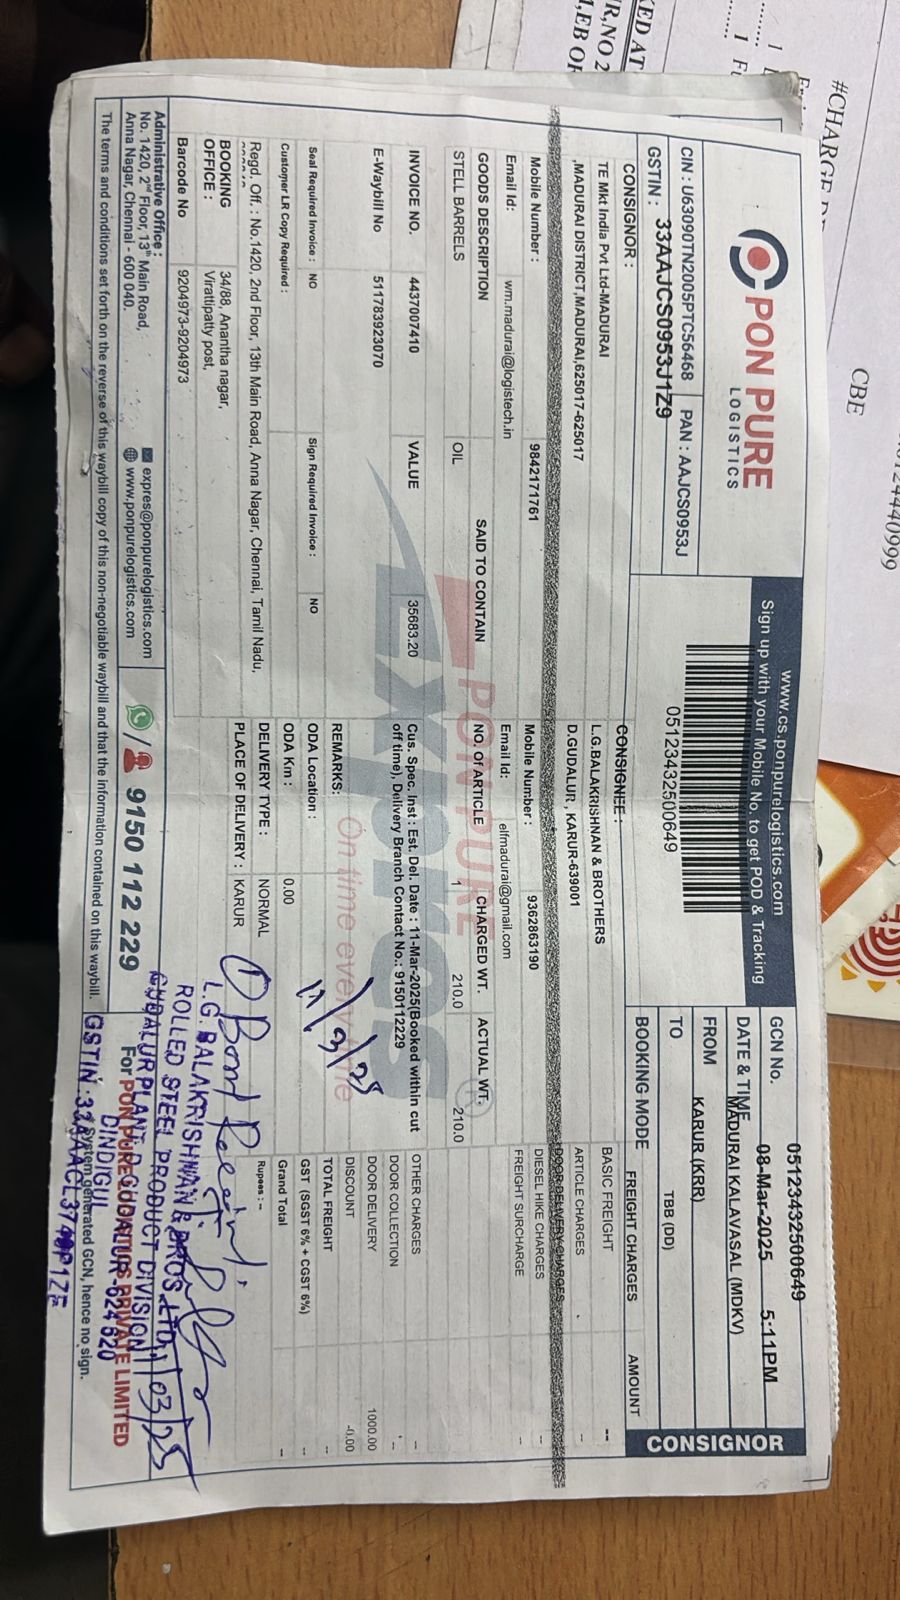 PON PURE
LOGISTICS
www.cs.ponpurelogistics.com
Sign up with your Mobile No. to get POD & Tracking
CIN : U63090TN2005PTC56468 PAN : AAJCS0953J
GSTIN : 33AAJCS0953J1Z9
05123432500649
GCN No. 05123432500649
DATE & TIME 08-Mar-2025 5:11PM
FROM MADURAI KALAVASAL (MDKV)
TO KARUR (KRR)
BOOKING MODE TBB (DD)
CONSIGNOR
CONSIGNOR :
TE Mkt India Pvt Ltd-MADURAI
,MADURAI DISTRICT,MADURAI,625017-625017
Mobile Number : 9842171761
Email Id: wm.madurai@logistech.in
CONSIGNEE :
L.G.BALAKRISHNAN & BROTHERS
D.GUDALUR , KARUR-639001
Mobile Number : 9362863190
Email Id: elfmadurai@gmail.com
FREIGHT CHARGES AMOUNT
BASIC FREIGHT --
ARTICLE CHARGES --
DOOR DELIVERY CHARGES
DIESEL HIKE CHARGES --
FREIGHT SURCHARGE --
OTHER CHARGES --
DOOR COLLECTION --
DOOR DELIVERY 1000.00
DISCOUNT -0.00
TOTAL FREIGHT --
GST (SGST 6% + CGST 6%) --
Grand Total --
Rupees : --
GOODS DESCRIPTION SAID TO CONTAIN NO. OF ARTICLE CHARGED WT. ACTUAL WT.
STELL BARRELS OIL 1 210.0 210.0
INVOICE NO. 4437007410 VALUE 35683.20
E-Waybill No 511783923070
Cus. Spec. Inst : Est. Del. Date : 11-Mar-2025(Booked within cut
off time), Delivery Branch Contact No.: 9150112229
PON PURE
express
On time every time
REMARKS:
11/3/25
Seal Required Invoice : NO Sign Required Invoice : NO
ODA Location :
Customer LR Copy Required :
ODA Km : 0.00
Regd. Off. : No.1420, 2nd Floor, 13th Main Road, Anna Nagar, Chennai, Tamil Nadu,
DELIVERY TYPE : NORMAL
PLACE OF DELIVERY : KARUR
BOOKING OFFICE : 34/88, Anantha nagar,
Virattipatty post,
Barcode No 9204973-9204973
L.G. BALAKRISHNAN & BROS LTD.,
ROLLED STEEL PRODUCT DIVISION
GUDALUR PLANT
DINDIGUL
GUDALUR-624 620
11/03/25
Administrative Office :
No. 1420, 2nd Floor, 13th Main Road,
Anna Nagar, Chennai - 600 040.
expres@ponpurelogistics.com
www.ponpurelogistics.com
9150 112 229
For PON PURE LOGISTICS PRIVATE LIMITED
System generated GCN, hence no sign.
The terms and conditions set forth on the reverse of this waybill copy of this non-negotiable waybill and that the information contained on this waybill.
CBE